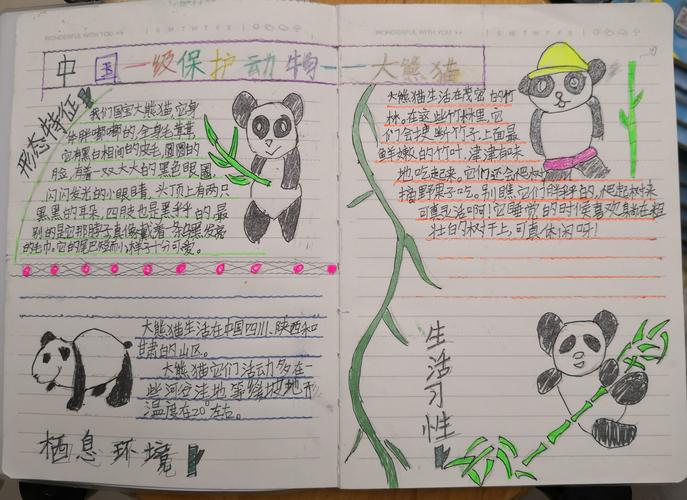 WONDERFUL WITH YOU
S M T W T F S
WONDERFUL WITH YOU
S M T W T F S
中国一级保护动物——大熊猫
形态特征
我们国宝大熊猫,它身
体胖嘟嘟的,全身毛茸茸
它有黑白相间的皮毛,圆圆的
脸,有着一双大大的黑色眼圈
闪闪发光的小眼睛,头顶上有两只
黑黑的耳朵,四肢也是黑乎乎的,最
别的是它那脖子真像戴着一条白黑发亮
的毛巾,它的尾巴短而小,样子十分可爱。
大熊猫生活在中国四川、陕西和
甘肃的山区。
大熊猫它们活动多在一
些河谷洼地等缓坡地形
温度在20°左右。
栖息环境
大熊猫生活在茂密的竹
林。在这些竹林里,它
们会挑些竹子上面最
鲜嫩的竹叶,津津有味
地吃起来。它们还会爬树
摘野果子吃。别瞧它们胖乎乎的,爬起树来
可真灵活啊!它睡觉的时候喜欢躺在粗
壮的树干上,可真休闲呀!
生活习性